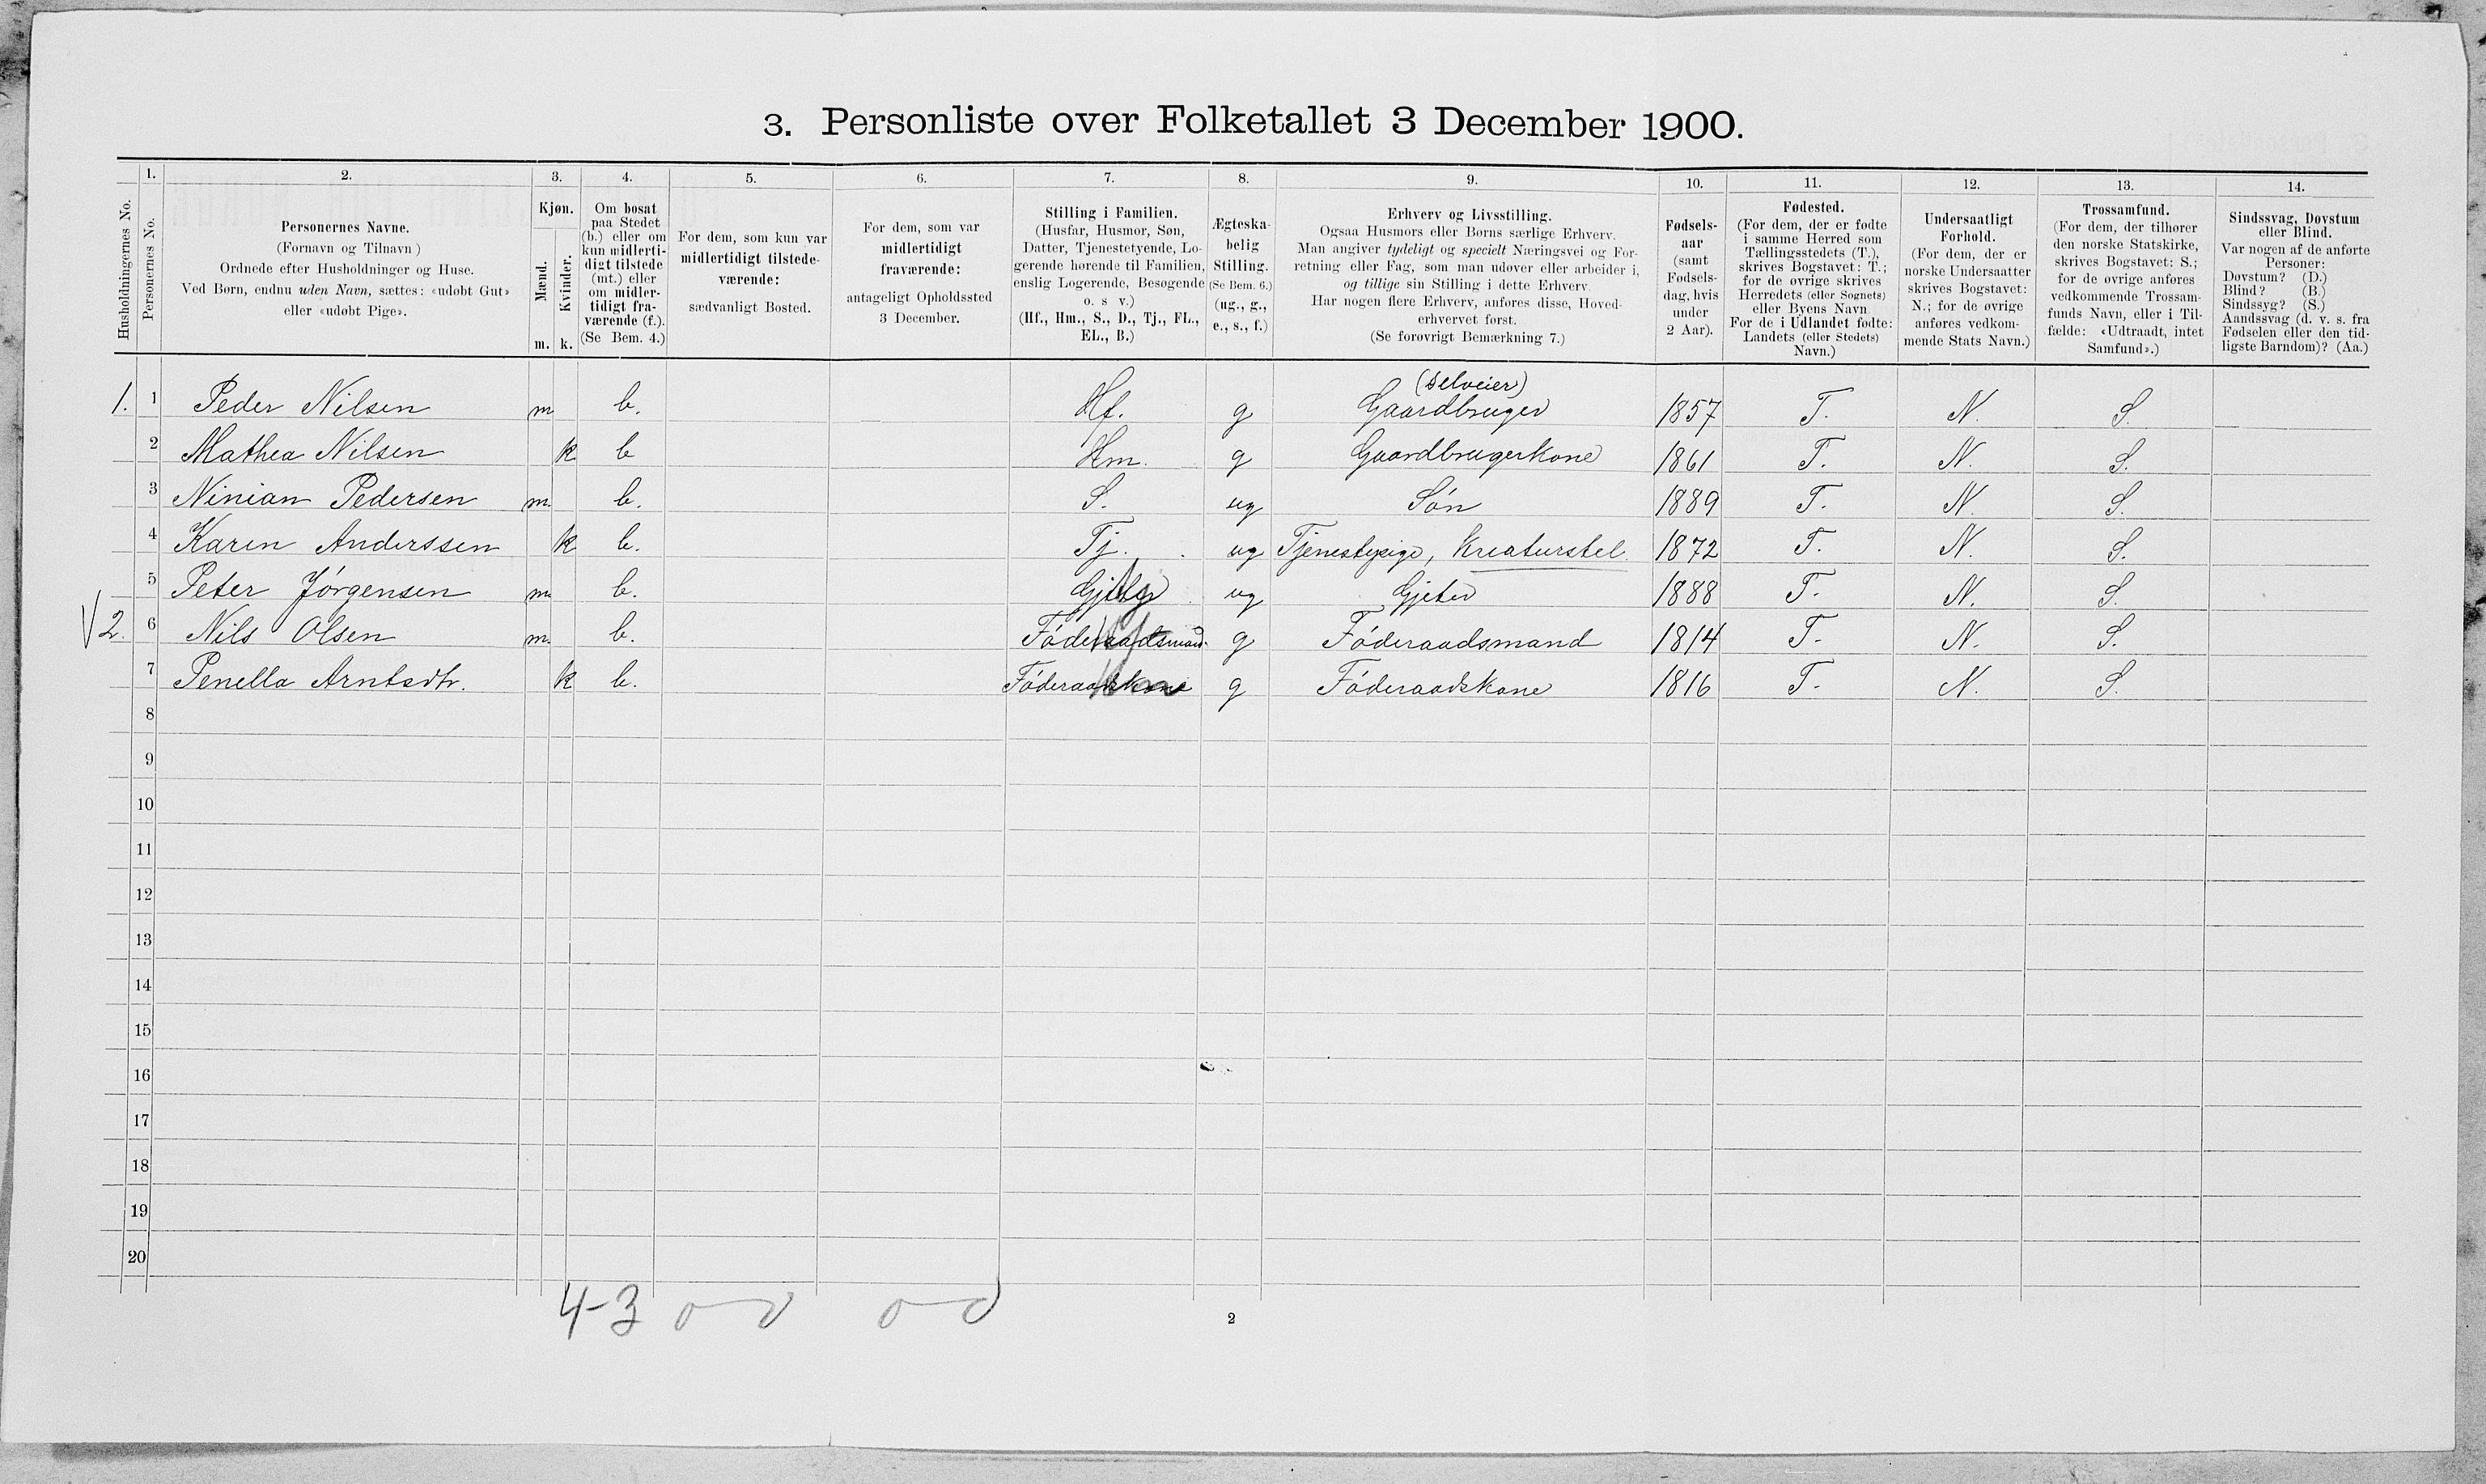 3. Personliste over Folketallet 3 December 1900.
Husholdningernes No.
1. Personernes No.
2. Personernes Navne.
(Fornavn og Tilnavn)
Ordnede efter Husholdninger og Huse.
Ved Børn, endnu uden Navn, sættes: «udøbt Gut»
eller «udøbt Pige».
3. Kjøn.
Mænd. m.
Kvinder. k.
4. Om bosat
paa Stedet
(b.) eller om
kun midlerti-
digt tilstede
(mt.) eller
om midler-
tidigt fra-
værende (f.).
(Se Bem. 4.)
5. For dem, som kun var
midlertidigt tilstede-
værende:
sædvanligt Bosted.
6. For dem, som var
midlertidigt
fraværende:
antageligt Opholdssted
3 December.
7. Stilling i Familien.
(Husfar, Husmor, Søn,
Datter, Tjenestetyende, Lo-
gerende hørende til Familien,
enslig Logerende, Besøgende
o. s v.)
(Hf., Hm., S., D., Tj., FL.,
EL., B.)
8. Ægteska-
belig
Stilling.
(Se Bem. 6.)
(ug., g.,
e., s., f.)
9. Erhverv og Livsstilling.
Ogsaa Husmors eller Børns særlige Erhverv.
Man angiver tydeligt og specielt Næringsvei og For-
retning eller Fag, som man udøver eller arbeider i,
og tillige sin Stilling i dette Erhverv.
Har nogen flere Erhverv, anføres disse, Hoved-
erhvervet først.
(Se forøvrigt Bemærkning 7.)
10. Fødsels-
aar
(samt
Fødsels-
dag, hvis
under
2 Aar).
11. Fødested.
(For dem, der er fødte
i samme Herred som
Tællingsstedets (T.),
skrives Bogstavet: T.;
for de øvrige skrives
Herredets (eller Sognets)
eller Byens Navn.
For de i Udlandet fødte:
Landets (eller Stedets)
Navn.)
12. Undersaatligt
Forhold.
(For dem, der er
norske Undersaatter
skrives Bogstavet:
N.; for de øvrige
anføres vedkom-
mende Stats Navn.)
13. Trossamfund.
(For dem, der tilhører
den norske Statskirke,
skrives Bogstavet: S.;
for de øvrige anføres
vedkommende Trossam-
funds Navn, eller i Til-
fælde: «Udtraadt, intet
Samfund».)
14. Sindssvag, Døvstum
eller Blind.
Var nogen af de anførte
Personer:
Døvstum? (D.)
Blind? (B.)
Sindssyg? (S.)
Aandssvag (d. v. s. fra
Fødselen eller den tid-
ligste Barndom)? (Aa.)
(selveier)
1. 1 Peder Nilsen m b. Hf. g Gaardbruger 1857 T. N. S.
2 Mathea Nilsen k b Hm. g Gaardbrugerkone 1861 T. N. S.
3 Ninian Pedersen m. b. S. ug Søn 1889 T. N. S.
4 Karen Anderssen k b. Tj. ug Tjenestepige, Kreaturstel. 1872 T. N. S.
5 Peter Jørgensen m b. ug Gjeter 1888 T. N. S.
2. 6 Nils Olsen m. b. Føderaadsmand. g Føderaadsmand 1814 T. N. S.
7 Penella Arntsdtr. k b. Føderaadskone g Føderaadskone 1816 T. N. S.
8
9
10
11
12
13
14
15
16
17
18
19
20
4-3 0-0 0-0
2